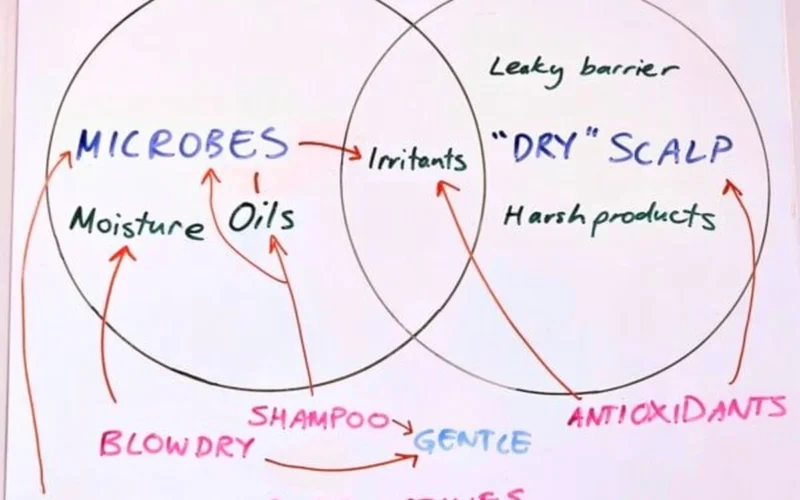 Leaky barrier
MICROBES
Irritants
"DRY" SCALP
Moisture
Oils
Harsh products
SHAMPOO
ANTIOXIDANTS
BLOWDRY
GENTLE